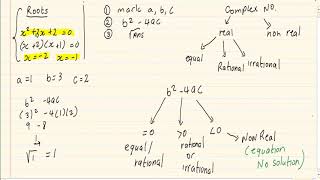 Roots
x²+3x+2=0
(x+2)(x+1)=0
x=-2 x=-1
a=1 b=3 c=2
b²-4ac
(3)²-4(1)(2)
9-8
√1 =1
① mark a, b, c
② b²-4ac
③
Complex No.
real
non real
equal
Rational
irrational
b²-4ac
=0
>0
<0
equal/
rational
rational
or
irrational
Non Real
(equation
No solution)